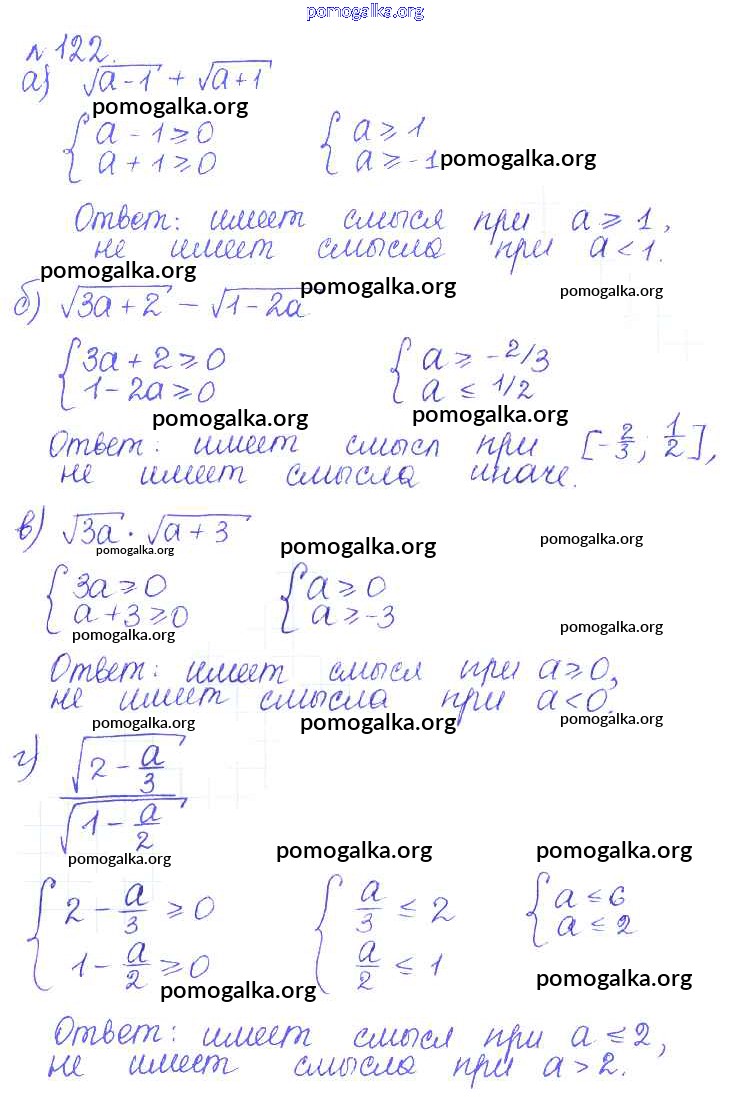 pomogalka.org
№122.
а) √(a-1) + √(a+1)
pomogalka.org
{ a - 1 ⩾ 0 { a ⩾ 1
{ a + 1 ⩾ 0 { a ⩾ -1 pomogalka.org
Ответ: имеет смысл при a ⩾ 1,
не имеет смысла при a < 1.
pomogalka.org pomogalka.org pomogalka.org
б) √(3a+2) - √(1-2a)
{ 3a + 2 ⩾ 0 { a ⩾ -2/3
{ 1 - 2a ⩾ 0 { a ⩽ 1/2
pomogalka.org pomogalka.org
Ответ: имеет смысл при [-2/3; 1/2],
не имеет смысла иначе.
в) √(3a) · √(a+3)
pomogalka.org pomogalka.org pomogalka.org
{ 3a ⩾ 0 { a ⩾ 0
{ a + 3 ⩾ 0 { a ⩾ -3
pomogalka.org pomogalka.org
Ответ: имеет смысл при a ⩾ 0,
не имеет смысла при a < 0.
pomogalka.org pomogalka.org pomogalka.org
г) √(2 - a/3)
√(1 - a/2)
pomogalka.org pomogalka.org pomogalka.org
{ 2 - a/3 ⩾ 0 { a/3 ⩽ 2 { a ⩽ 6
{ 1 - a/2 ⩾ 0 { a/2 ⩽ 1 { a ⩽ 2
pomogalka.org pomogalka.org
Ответ: имеет смысл при a ⩽ 2,
не имеет смысла при a > 2.